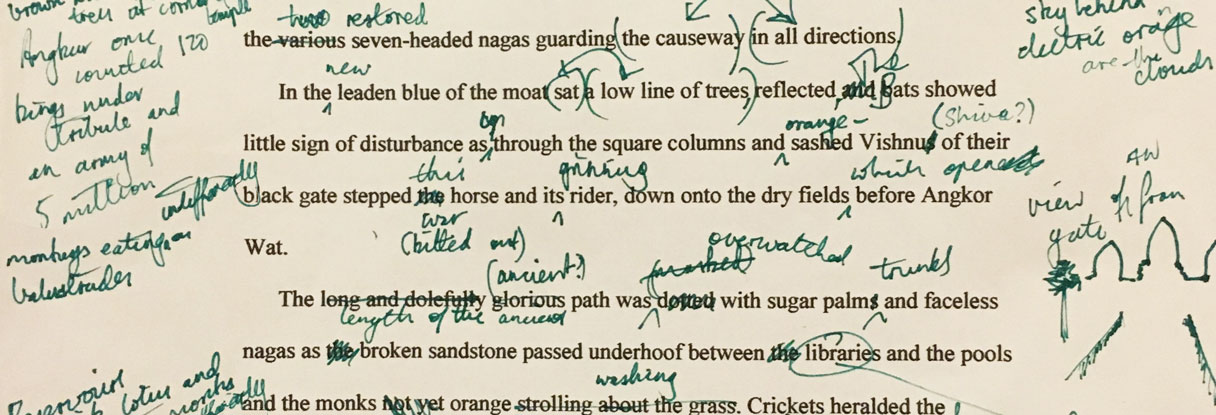 brown
trees at corner
temple
Angkor once
counted 120
kings under
tribute and
an army of
5 million
indifferently
monkeys eating on
balustrades
restored
the various seven-headed nagas guarding (the causeway) (in all directions)
sky behind
electric orange
are the
clouds
new
The
In the leaden blue of the moat (sat) a low line of trees, reflected, and Bats showed
orange-
(Shiva?)
little sign of disturbance as through the square columns and sashed Vishnus of their
this
grinning
which opened
black gate stepped the horse and its rider, down onto the dry fields before Angkor
war
(kitted out)
Wat.
AW
view of from
gate
(ancient?)
overwatched
trunks
The long and dolefully glorious path was dotted with sugar palms and faceless
length of the ancient
nagas as the broken sandstone passed underhoof between the libraries and the pools
washing
and the monks not yet orange strolling about the grass. Crickets heralded the
lotus and
monks